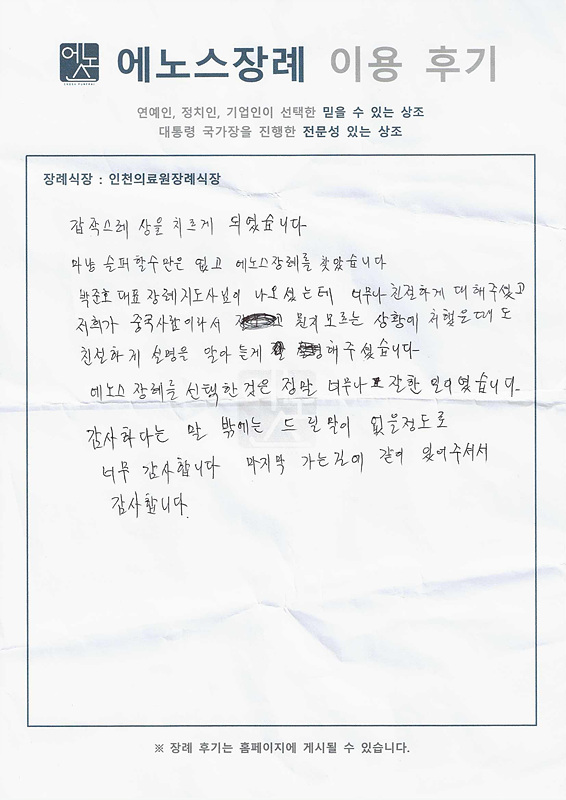 에노스
에노스장례 이용 후기
연예인, 정치인, 기업인이 선택한 믿을 수 있는 상조
대통령 국가장을 진행한 전문성 있는 상조
장례식장 : 인천의료원장례식장
갑족스레 상을 치르게 되였습니다
마냥 슬퍼할수만은 없고 에노스장례를 찾았습니다
박준호 대표 장례지도사님이 나오셨는데 너무나 친절하게 대해주셨고
저희가 중국사람이라서 뭔지 모르는 상황에 처했을때도
친절하게 설명을 알아 듣게 해주셨습니다
에노스 장례를 선택한것은 정말 너무나 잘한 일이였습니다
감사하다는 말 밖에는 드릴말이 없을정도로
너무 감사합니다 마지막 가는길에 같이 있어주셔서
감사합니다.
※ 장례 후기는 홈페이지에 게시될 수 있습니다.